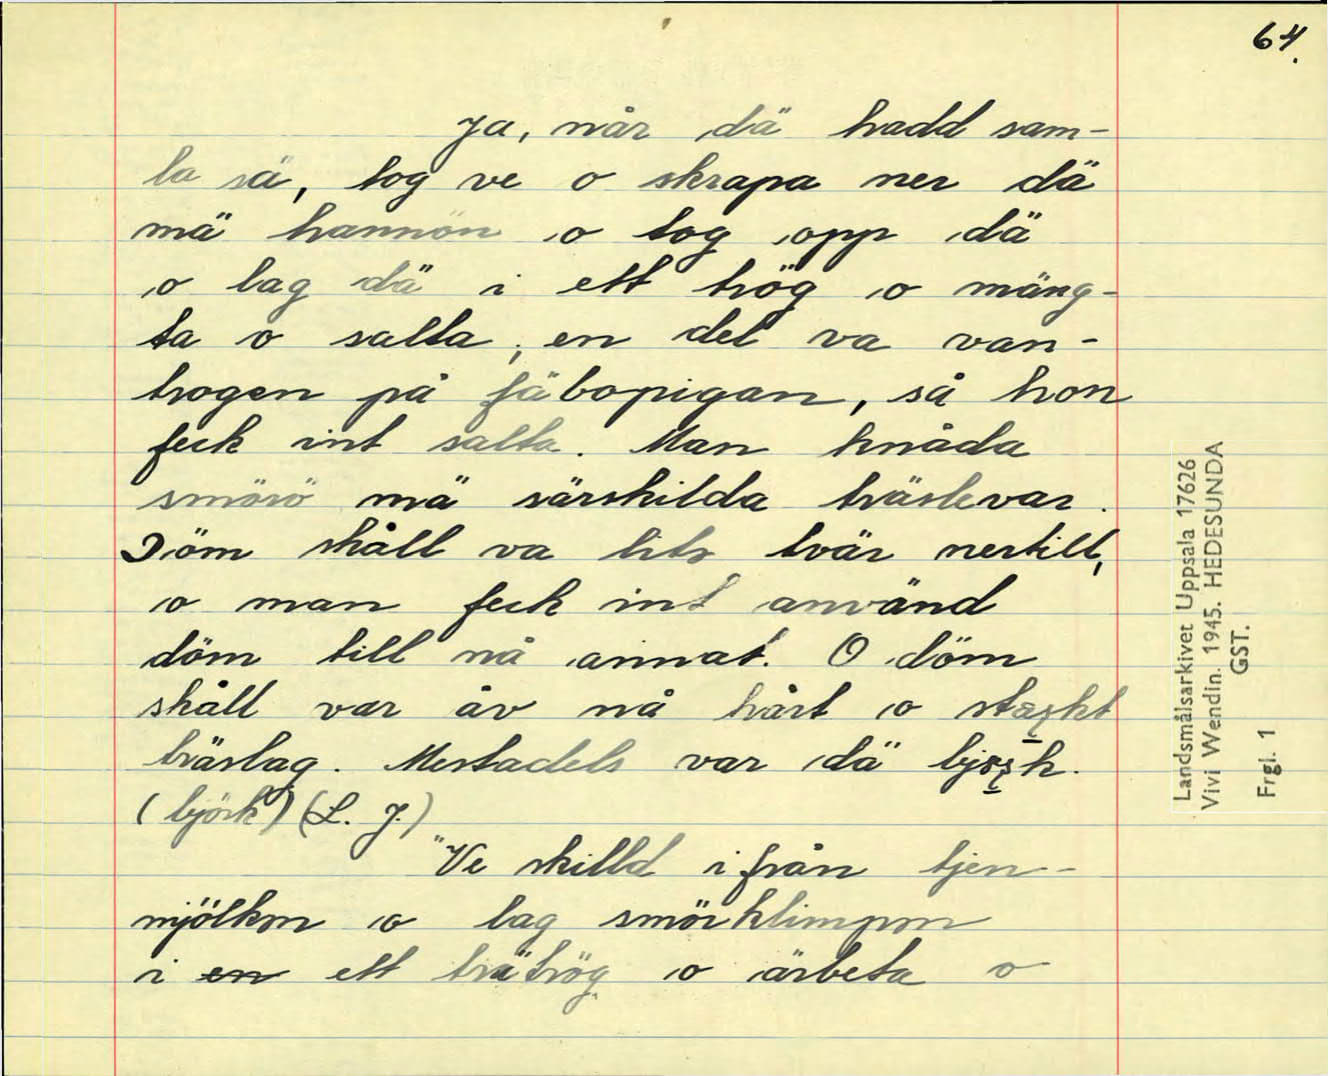 64.
Ja, når dä hadd sam-
la sä, tog ve o skrapa ner dä
mä hannön o tog opp dä
o lag dä i ett trög o mäng-
ta o salta; en del va van-
trogen på fäbopigan, så hon
feck int salta. Man knåda
smörö mä särskilda träslevar.
Döm skåll va lits tvär nertill,
o man feck int använd
döm till nå annat. O döm
skåll var åv nå hårt o
träslag. Mestadels var dä
(björk) (L. J.)
"Ve skilld ifrån tjen-
mjölkm o lag smörklimpm
i en ett träträg o ärbeta o
Landsmålsarkivet Uppsala 17626
Vivi Wendin. 1945. HEDESUNDA
GST.
Frgl. 1